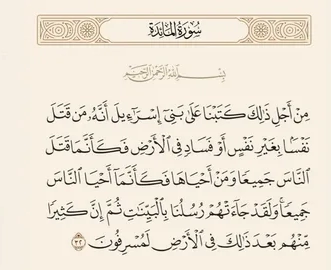 سُورَةُ المَائِدَة
بِسْمِ اللَّهِ الرَّحْمَٰنِ الرَّحِيمِ
مِنْ أَجْلِ ذَٰلِكَ كَتَبْنَا عَلَىٰ بَنِىٓ إِسْرَٰٓءِيلَ أَنَّهُۥ مَن قَتَلَ
نَفْسًۢا بِغَيْرِ نَفْسٍ أَوْ فَسَادٍ فِى ٱلْأَرْضِ فَكَأَنَّمَا قَتَلَ
ٱلنَّاسَ جَمِيعًا وَمَنْ أَحْيَاهَا فَكَأَنَّمَآ أَحْيَا ٱلنَّاسَ
جَمِيعًا ۚ وَلَقَدْ جَآءَتْهُمْ رُسُلُنَا بِٱلْبَيِّنَٰتِ ثُمَّ إِنَّ كَثِيرًا
مِّنْهُم بَعْدَ ذَٰلِكَ فِى ٱلْأَرْضِ لَمُسْرِفُونَ ٣٢